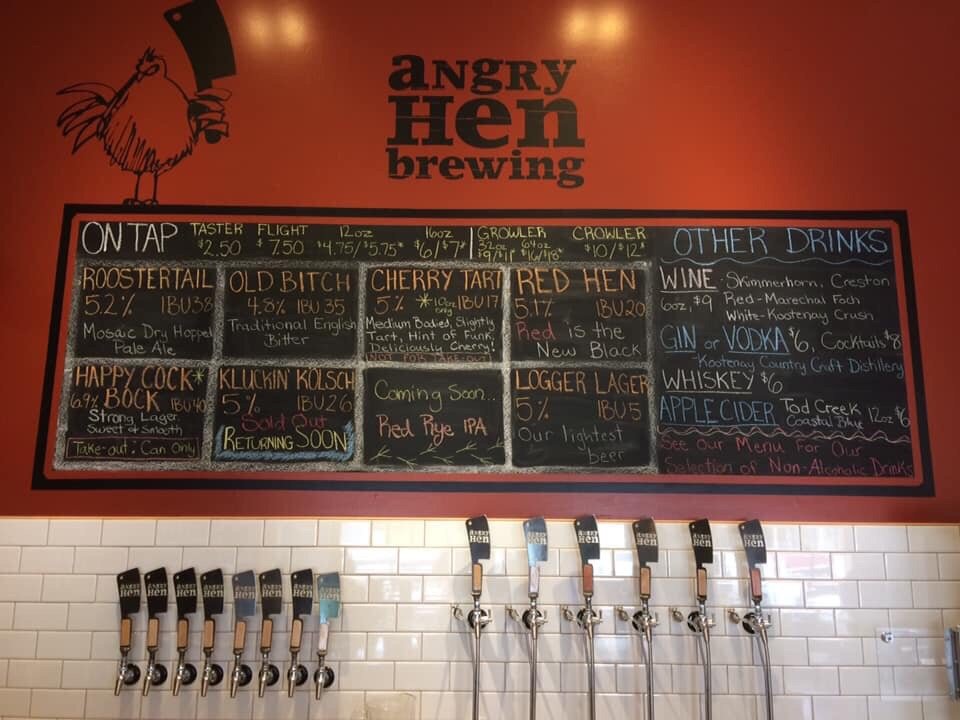 aNgRY
Hen
brewing
ON TAP
TASTER
$2.50
FLIGHT
$7.50
12oz
$4.75/5.75*
16oz
$6/$7*
GROWLER
32oz 64oz
CROWLER
$10/$12*
ROOSTERTAIL
5.2% IBU 38
Mosaic Dry Hopped
Pale Ale
OLD BITCH
4.8% IBU 35
Traditional English
Bitter
CHERRY TART
5% *10oz only IBU 17
Medium Bodied, Slightly
Tart, Hint of Funk,
Deliciously Cherry!
NOT FOR TAKE-OUT
RED HEN
5.1% IBU 20
Red is the
New Black
HAPPY COCK*
BOCK
6.9% IBU 40
Strong Lager
Sweet & Smooth
Take-out: Can Only
KLUCKIN' KOLSCH
5% IBU 26
Sold Out
RETURNING SOON
Coming Soon...
Red Rye IPA
LOGGER LAGER
5% IBU 5
Our lightest
beer
OTHER DRINKS
WINE - Skimmerhorn, Creston
6oz, $9 Red - Marechal Foch
White - Kootenay Crush
GIN or VODKA $6, Cocktails $8
- Kootenay Country Craft Distillery
WHISKEY $6
APPLE CIDER Tod Creek
Coastal Blue 12oz $6
See Our Menu For Our
Selection of Non-Alcoholic Drinks
aNgRY
Hen
aNgRY
Hen
aNgRY
Hen
aNgRY
Hen
aNgRY
Hen
aNgRY
Hen
aNgRY
Hen
aNgRY
Hen
aNgRY
Hen
aNgRY
Hen
aNgRY
Hen
aNgRY
Hen
aNgRY
Hen
aNgRY
Hen